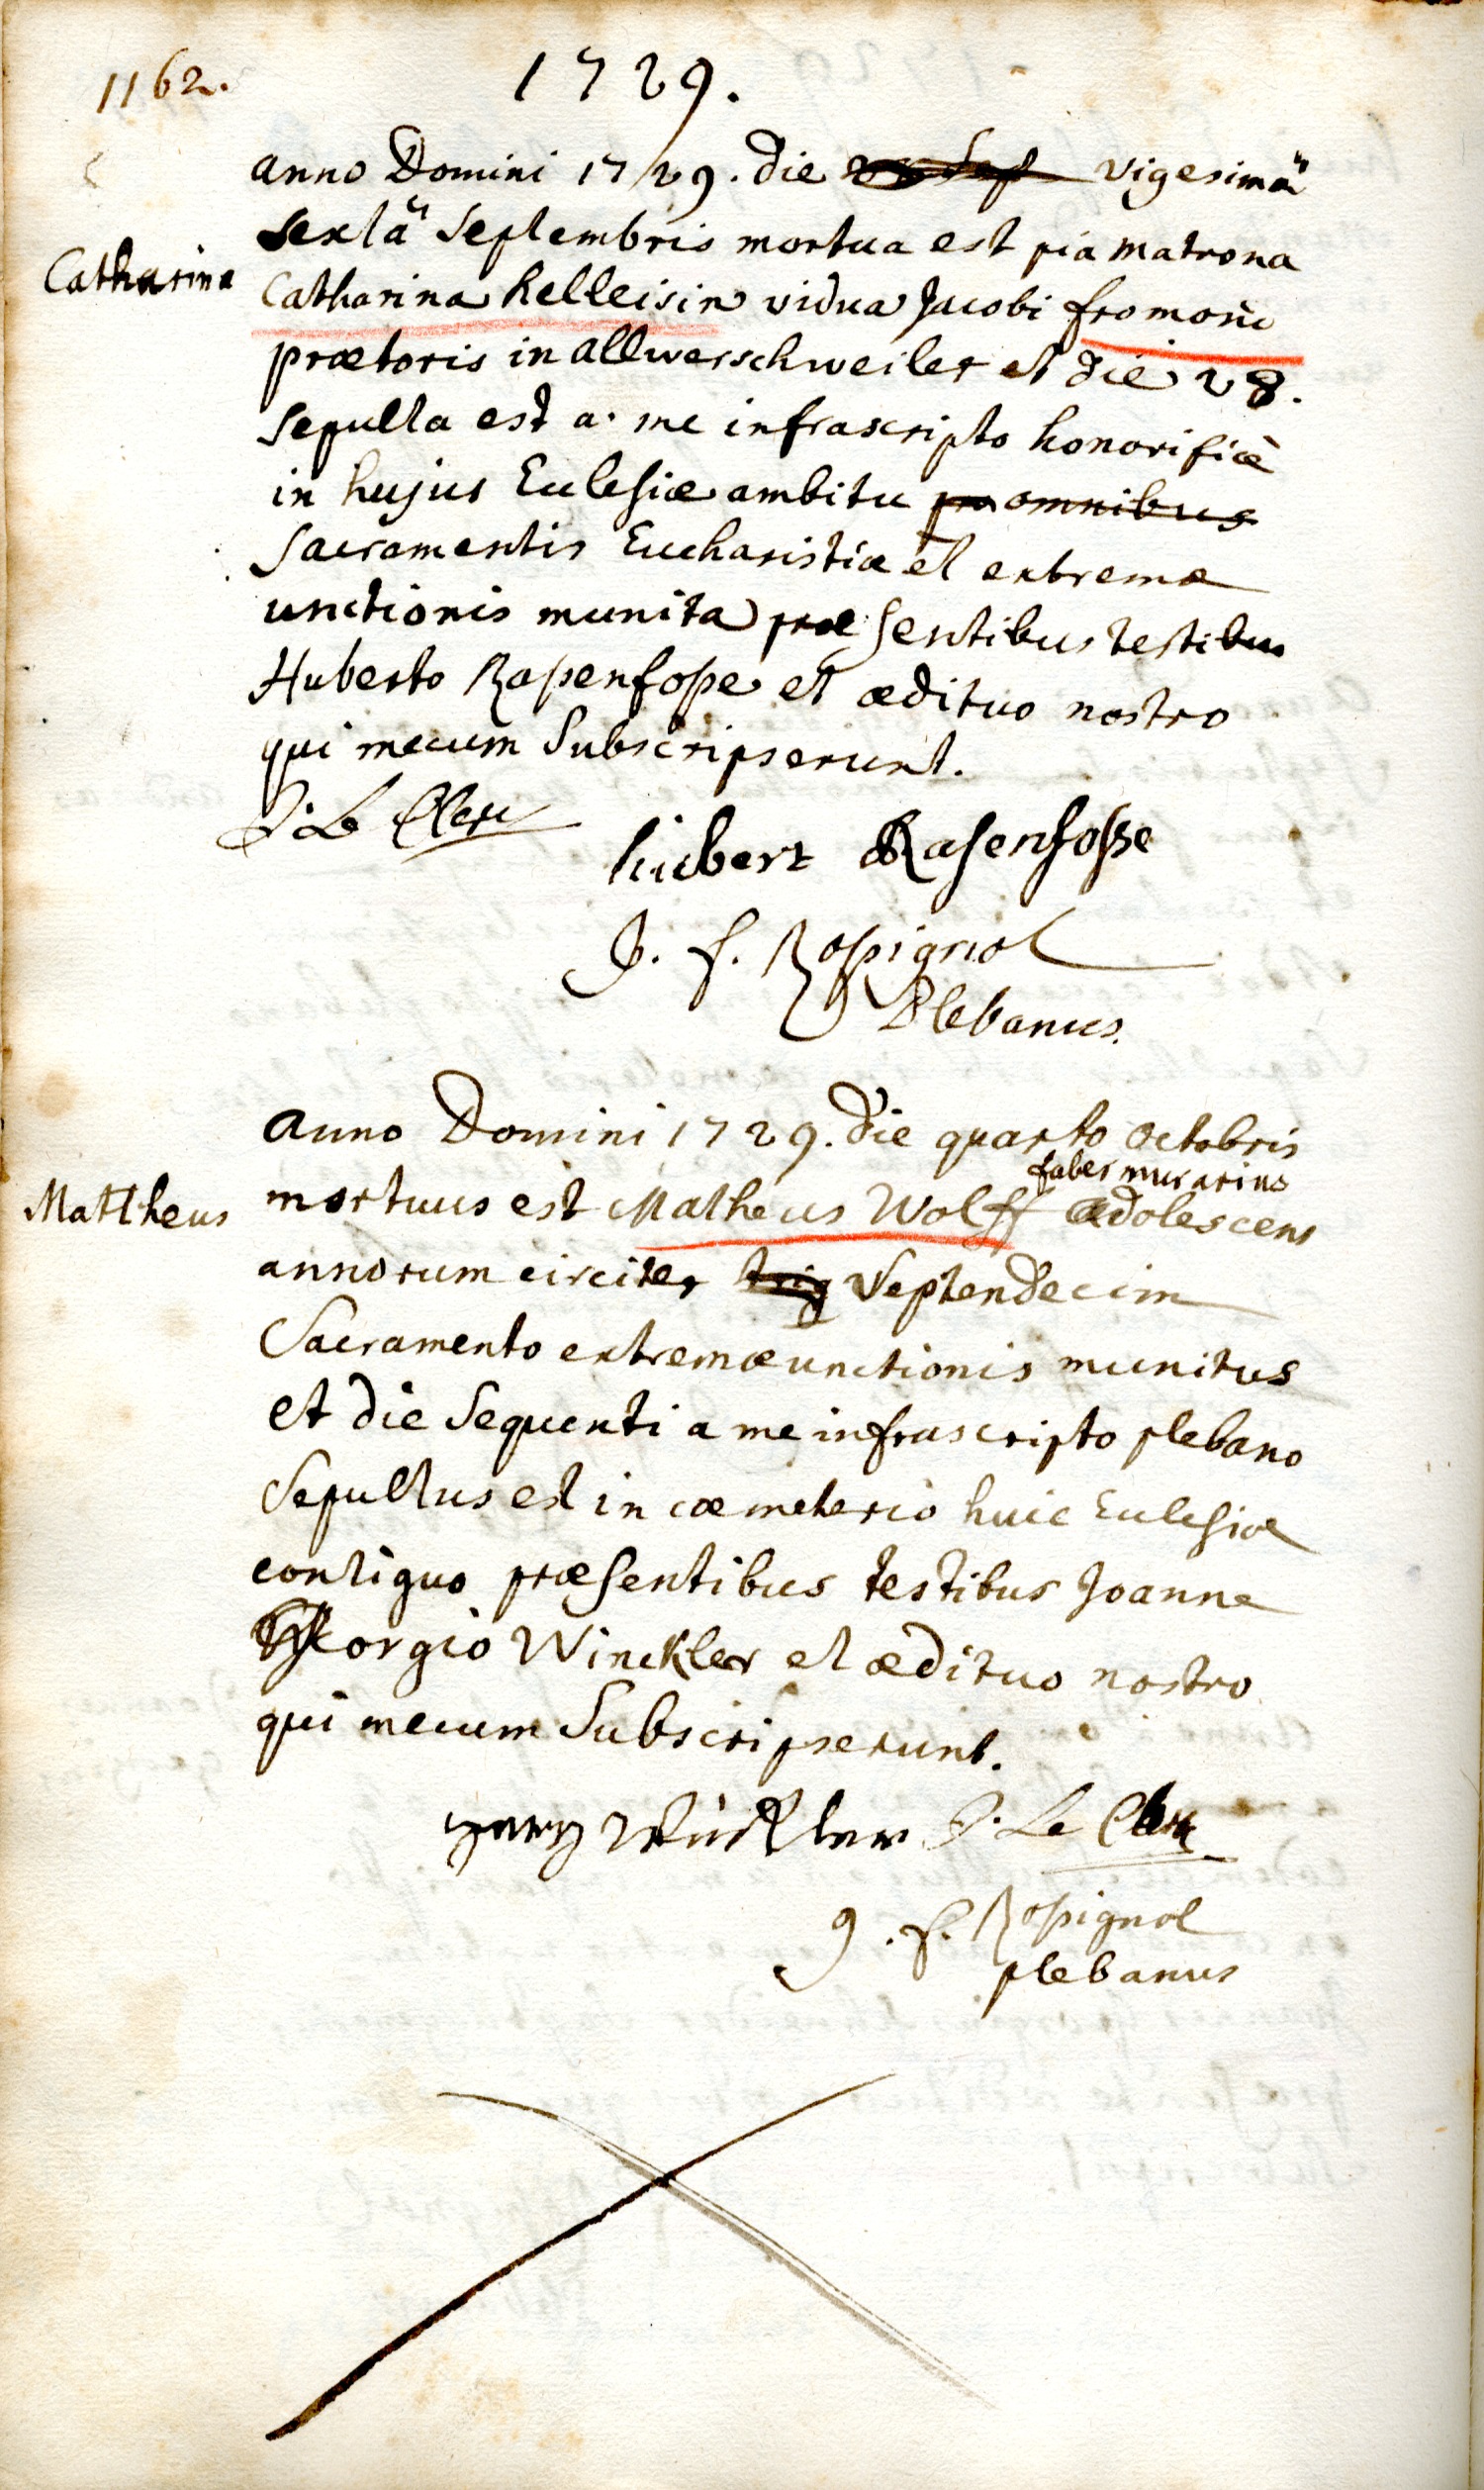 1162.
1729.
anno Domini 1729. die vigesimâ
sextâ Septembris mortua est pia matrona
Catharina
Catharina Kelleisin vidua Jacobi fromoñ
prætoris in allwerschweiler et die 28.
Sepulta est a me infrascripto honorificè
in hujus Eclesiæ ambitu omnibus
Sacramentis Eucharistiæ et extremæ
unctionis munita præsentibus testibus
Huberto Rasenfosse et ædituo nostro
qui mecum Subscripserunt.
Le Clerc
hubert Rasenfosse
J. f. Rossignol
Plebanus.
anno Domini 1729. die quarto octobris
faber murarius
Mattheus
mortuus est Matheus Wolff adolescens
annorum circiter trig Septendecim
Sacramento extremæ unctionis munitus
et die Sequenti a me infrascripto plebano
Sepultus est in cæmeterio huic Eclesiæ
contiguo præsentibus testibus Joanne
Georgio Winckler et ædituo nostro
qui mecum Subscripserunt.
Winckler Le Clerc
J. f. Rossignol
plebanus